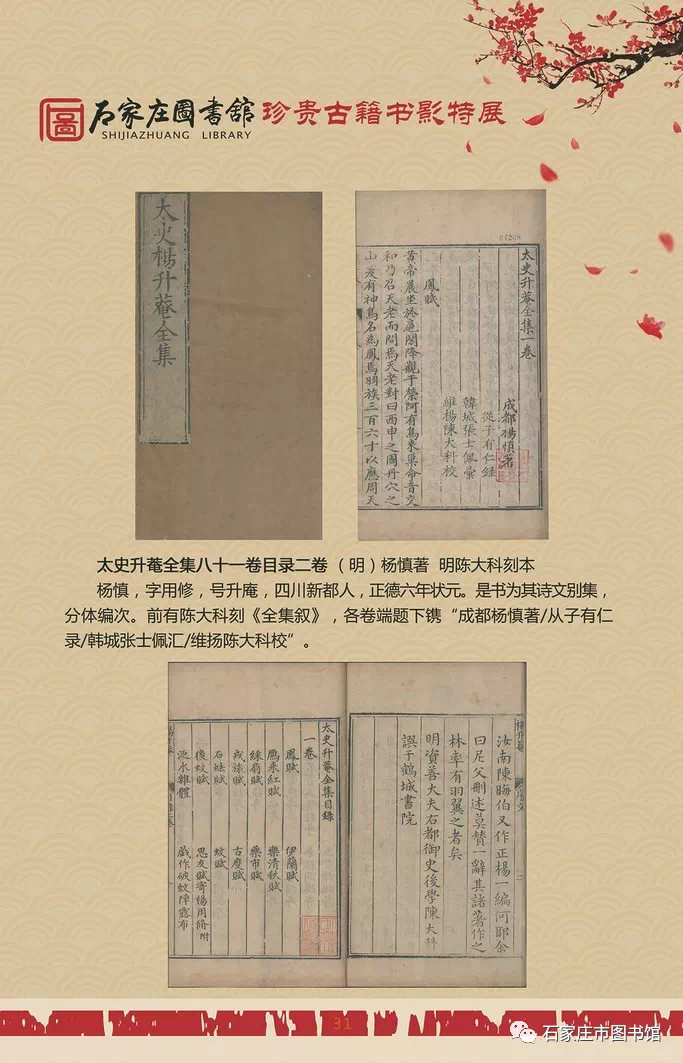 石家庄圖書舘 珍贵古籍书影特展
SHIJIAZHUANG LIBRARY
太史楊升菴全集
01268
太史升菴全集一卷
成都楊慎著
從子有仁錄
韓城張士佩彙
維楊陳大科校
鳳賦
黃帝晨坐於扈閣降觀于榮阿有鳥來集命音交
和乃召天老而問焉天老對曰西申之國丹穴之
山爰有神鳥名為鳳焉羽族三百六十以應周天
太史升菴全集八十一卷目录二卷（明）杨慎著 明陈大科刻本
杨慎，字用修，号升庵，四川新都人，正德六年状元。是书为其诗文别集，
分体编次。前有陈大科刻《全集叙》，各卷端题下镌“成都杨慎著/从子有仁
录/韩城张士佩汇/维扬陈大科校”。
汝南陳晦伯又作正楊一編何耶余
曰尼父刪述莫贊一辭其諸著作之
林率有羽翼之者矣
明資善大夫右都御史後學陳大科
譔于鶴城書院
太史升菴全集目錄
一卷
鳳賦 伊蘭賦
鴈來紅賦 樂清秋賦
綠扇賦 藥市賦
戎旅賦 古度賦
石妹賦 蚊賦
後蚊賦 思友賦寄楊用脩附
泛水雜體 戲作破蚊陣露布
31
石家庄市图书馆